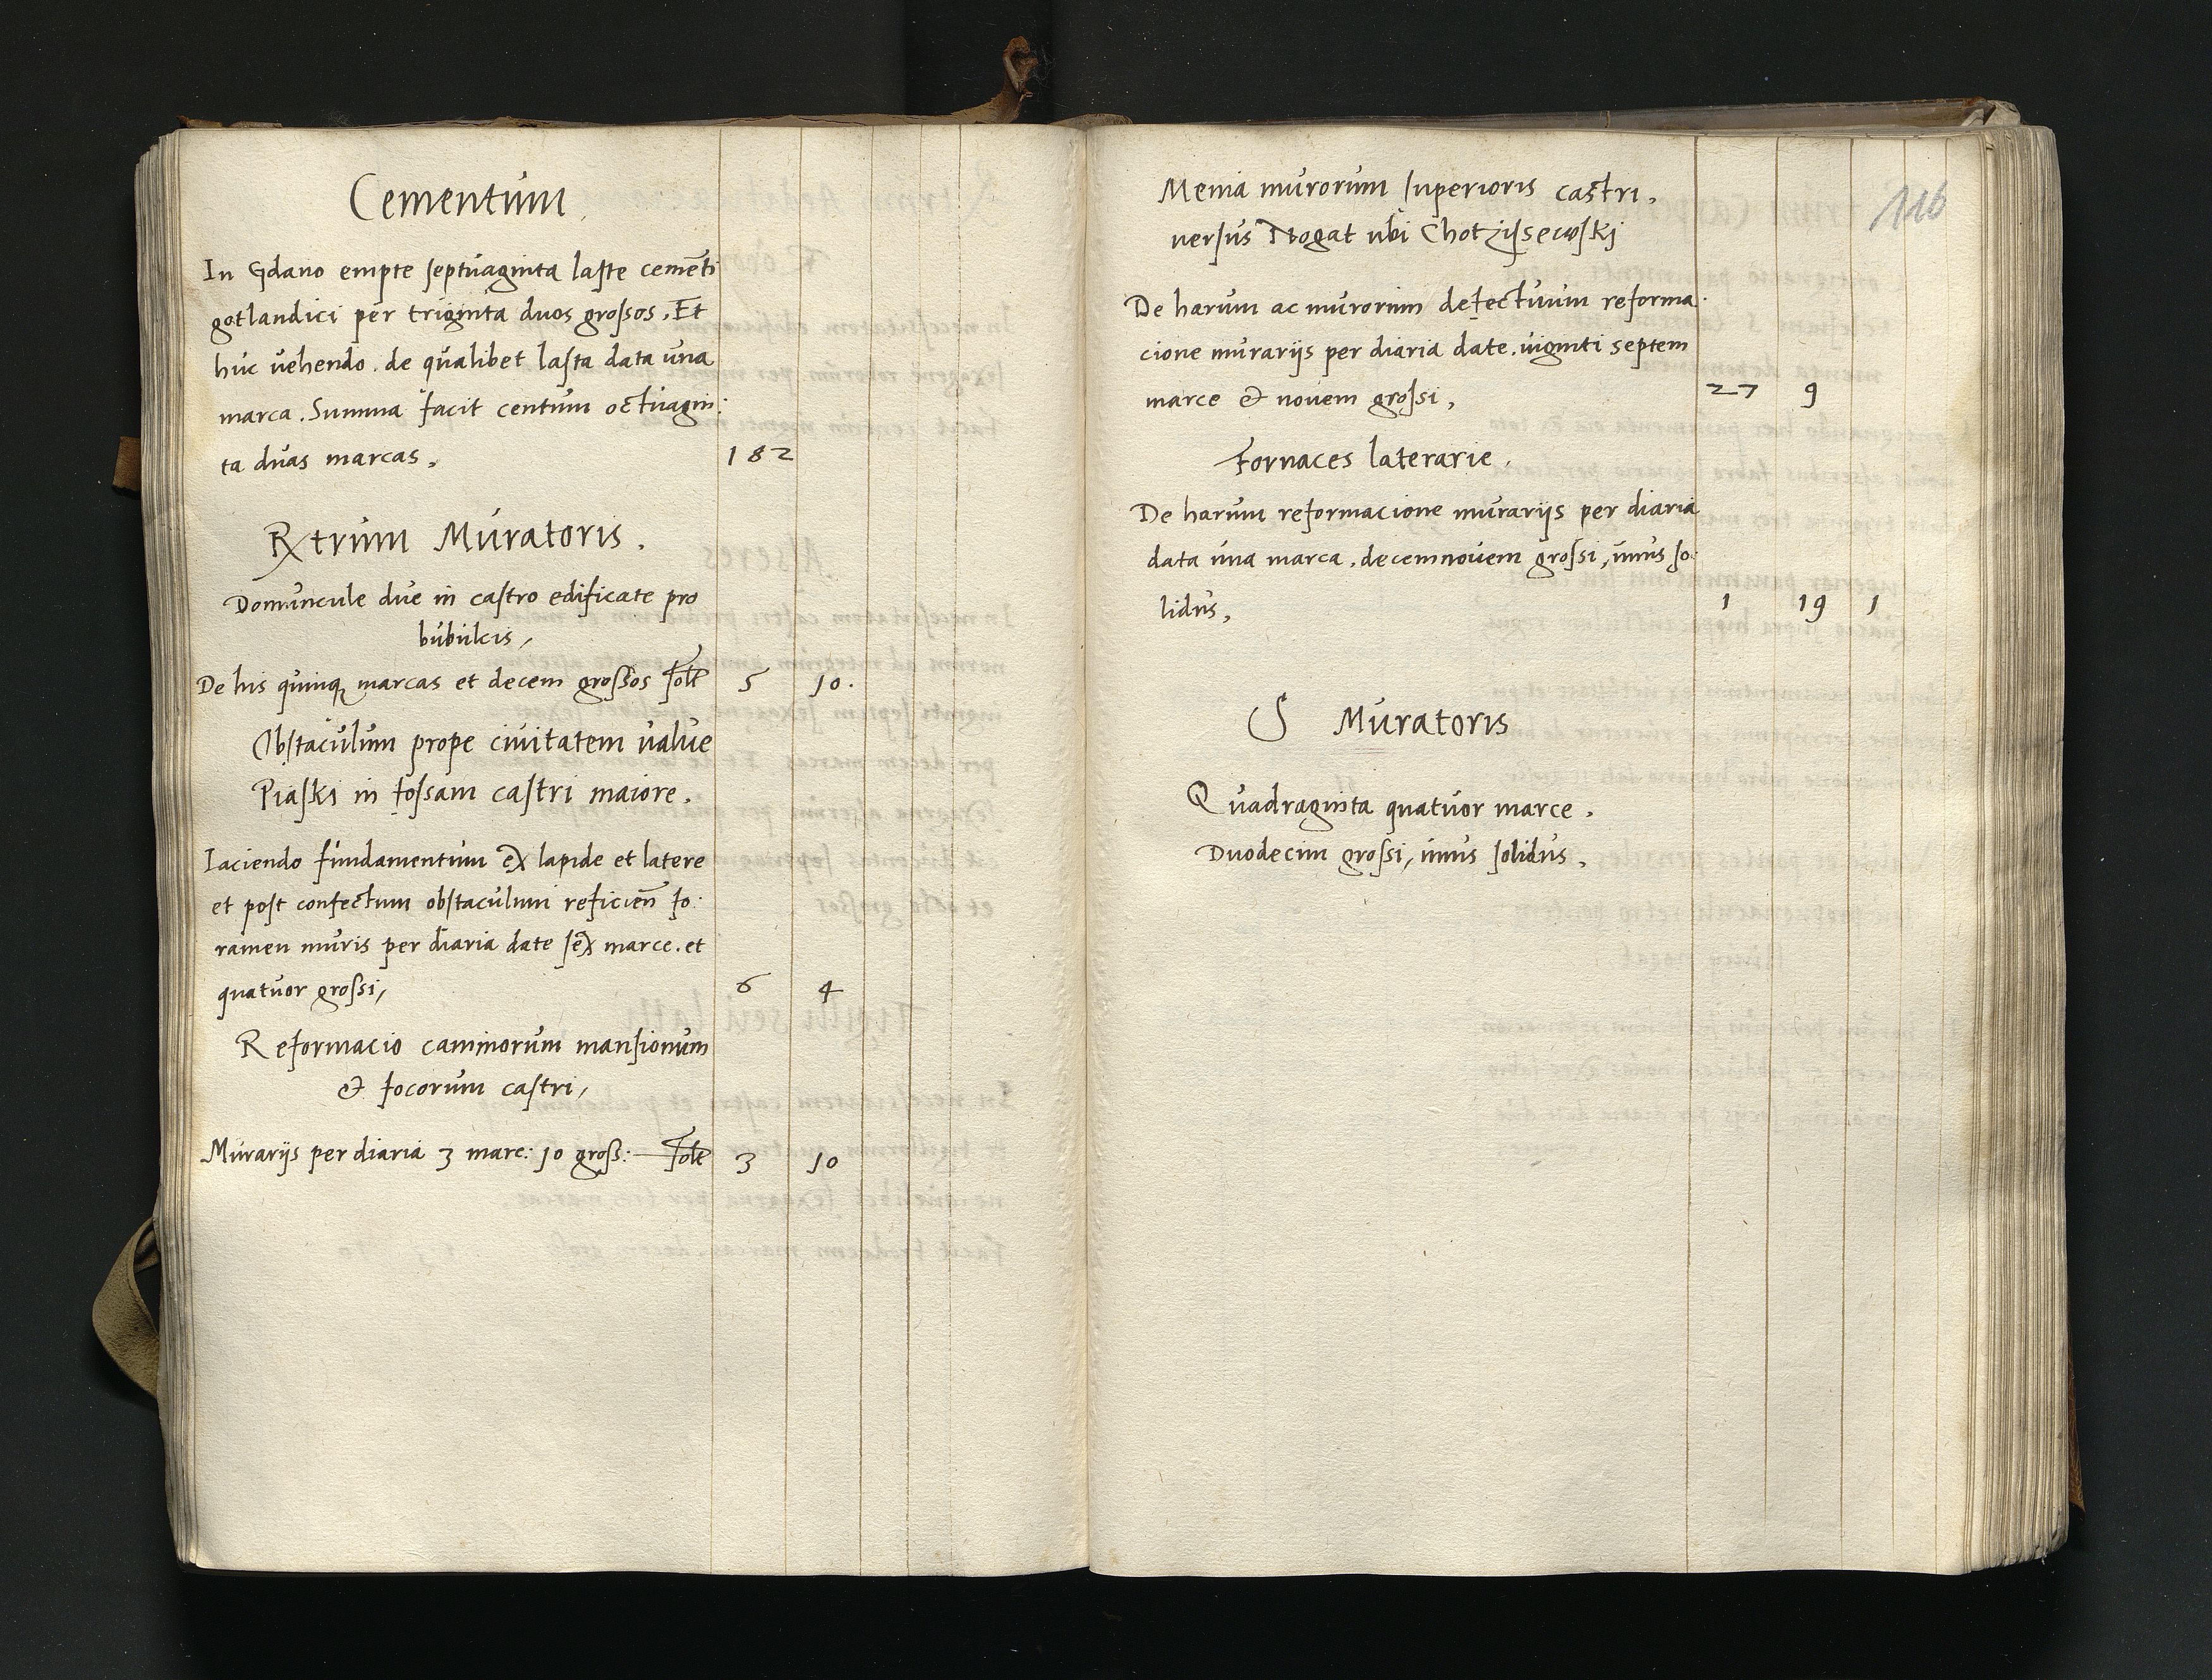 Cementum
In Gdano empte septuaginta laste cemēti
gotlandici per triginta duos grossos. Et
huc vehendo. de qualibet lasta data una
marca. Summa facit centum octuagin:
ta duas marcas. 182
Rxtrum Muratoris.
Domuncule due in castro edificate pro
bubulcis,
De his quinqꝫ marcas et decem grossos 5 10.
Obstaculum prope civitatem value
Piaski in fossam castri maiore.
Iaciendo fundamentum ex lapide et latere
et post confectum obstaculum reficien̄ fo:
ramen muris per diaria date sex marce. et
quatuor grossi, 6 4
Reformacio caminorum mansionum
& focorum castri,
Murarijs per diaria 3 marc: 10 gross: 3 10
116
Menia murorum superioris castri.
versus Nogat ubi Chotzissewski
De harum ac murorum defectuum reforma:
cione murarijs per diaria date. viginti septem
marce & novem grossi, 27 9
Fornaces laterarie.
De harum reformacione murarijs per diaria
data una marca. decemnovem grossi, unus so:
lidus, 1 19 1
S Muratoris
Quadraginta quatuor marce.
Duodecim grossi, unus solidus.